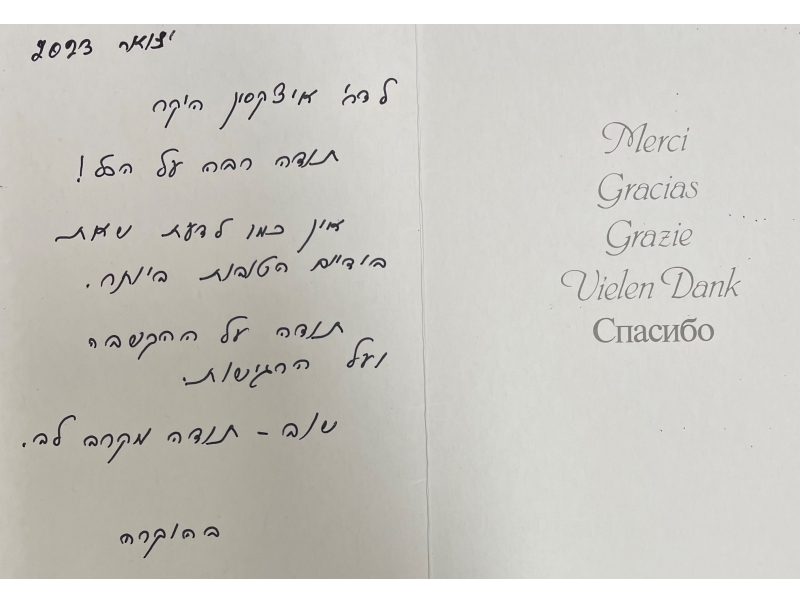 ינואר 2023
לדר' איצקסון היקר
תודה רבה על הכל!
אין כמו לדעת שאת
בידיים הטובות ביותר.
תודה על ההקשבה
ועל הרגישות.
שוב - תודה מקרב לב.
בהוקרה
Merci
Gracias
Grazie
Vielen Dank
Спасибо